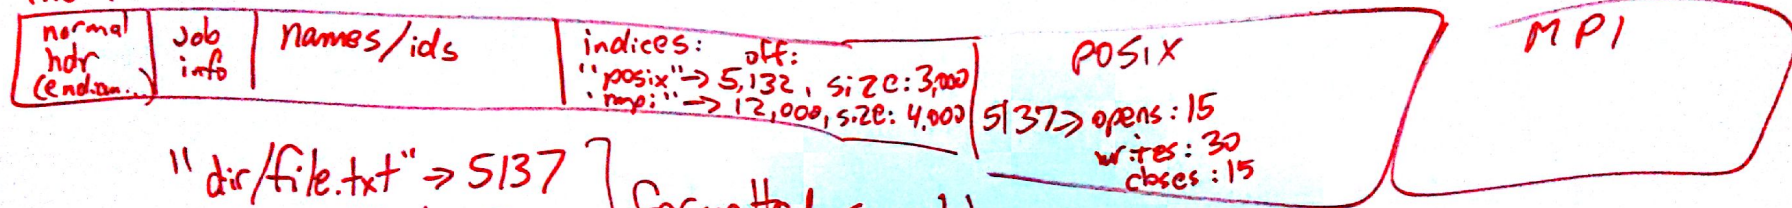 normal
hdr
(endian...)
job
info
names/ids
indices:
off:
"posix" → 5,132, size: 3,000
"mpi" → 12,000, size: 4,000
POSIX
5137 → opens: 15
writes: 30
closes: 15
MPI
"dir/file.txt" → 5137